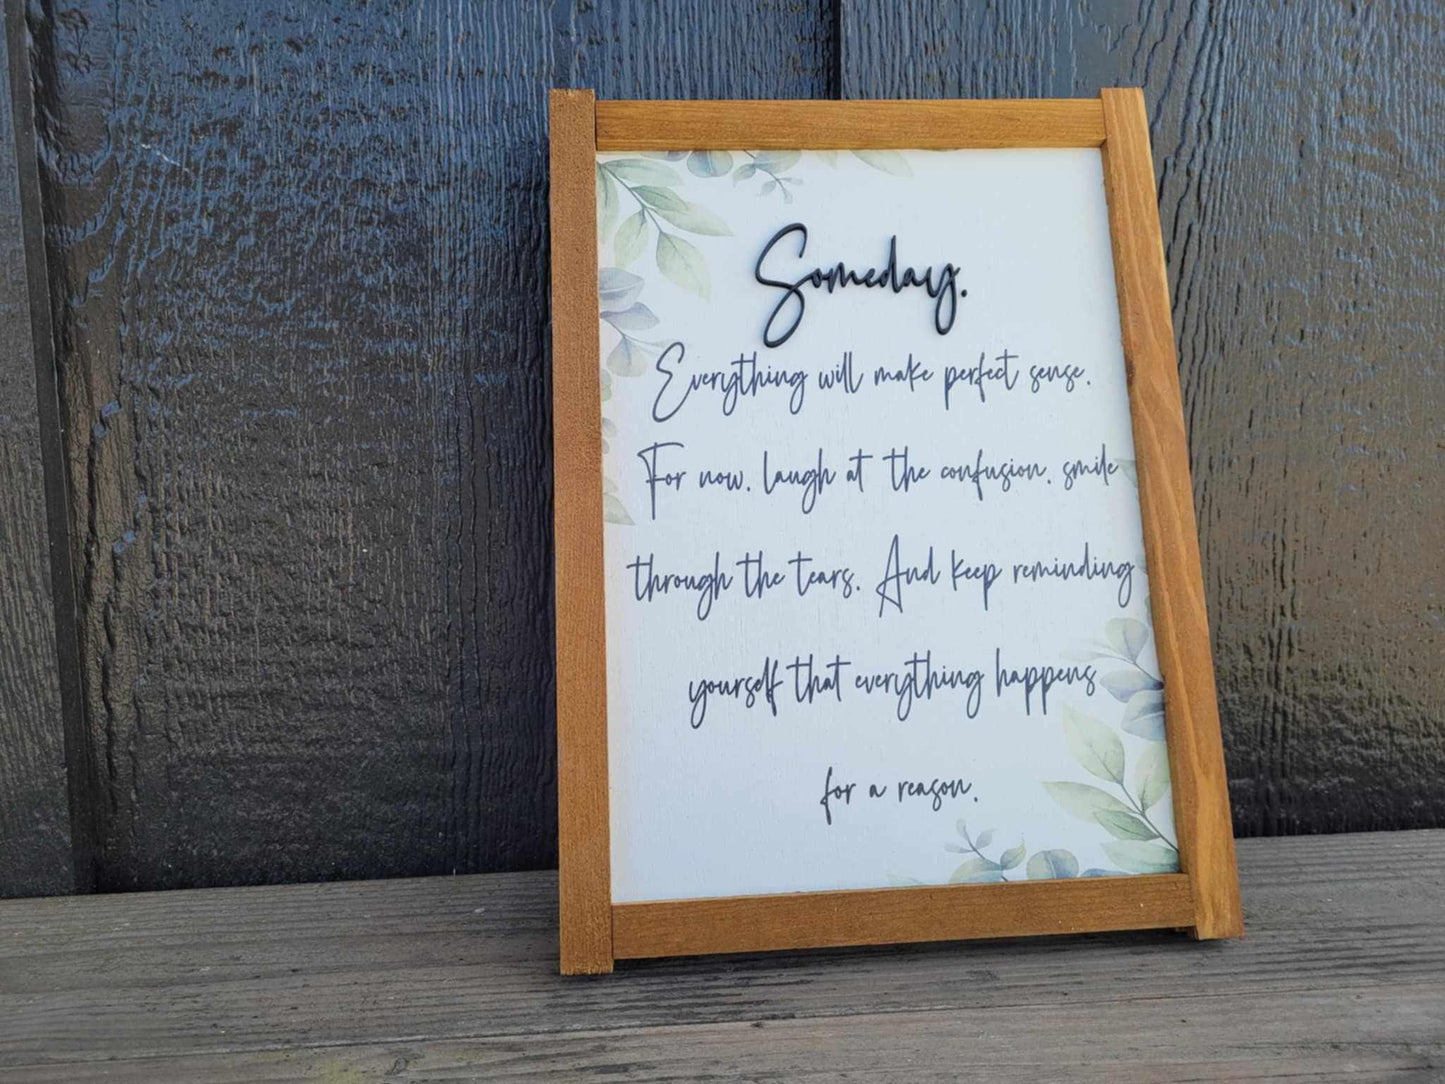 Someday.
Everything will make perfect sense.
For now, laugh at the confusion, smile
through the tears. And keep reminding
yourself that everything happens
for a reason.